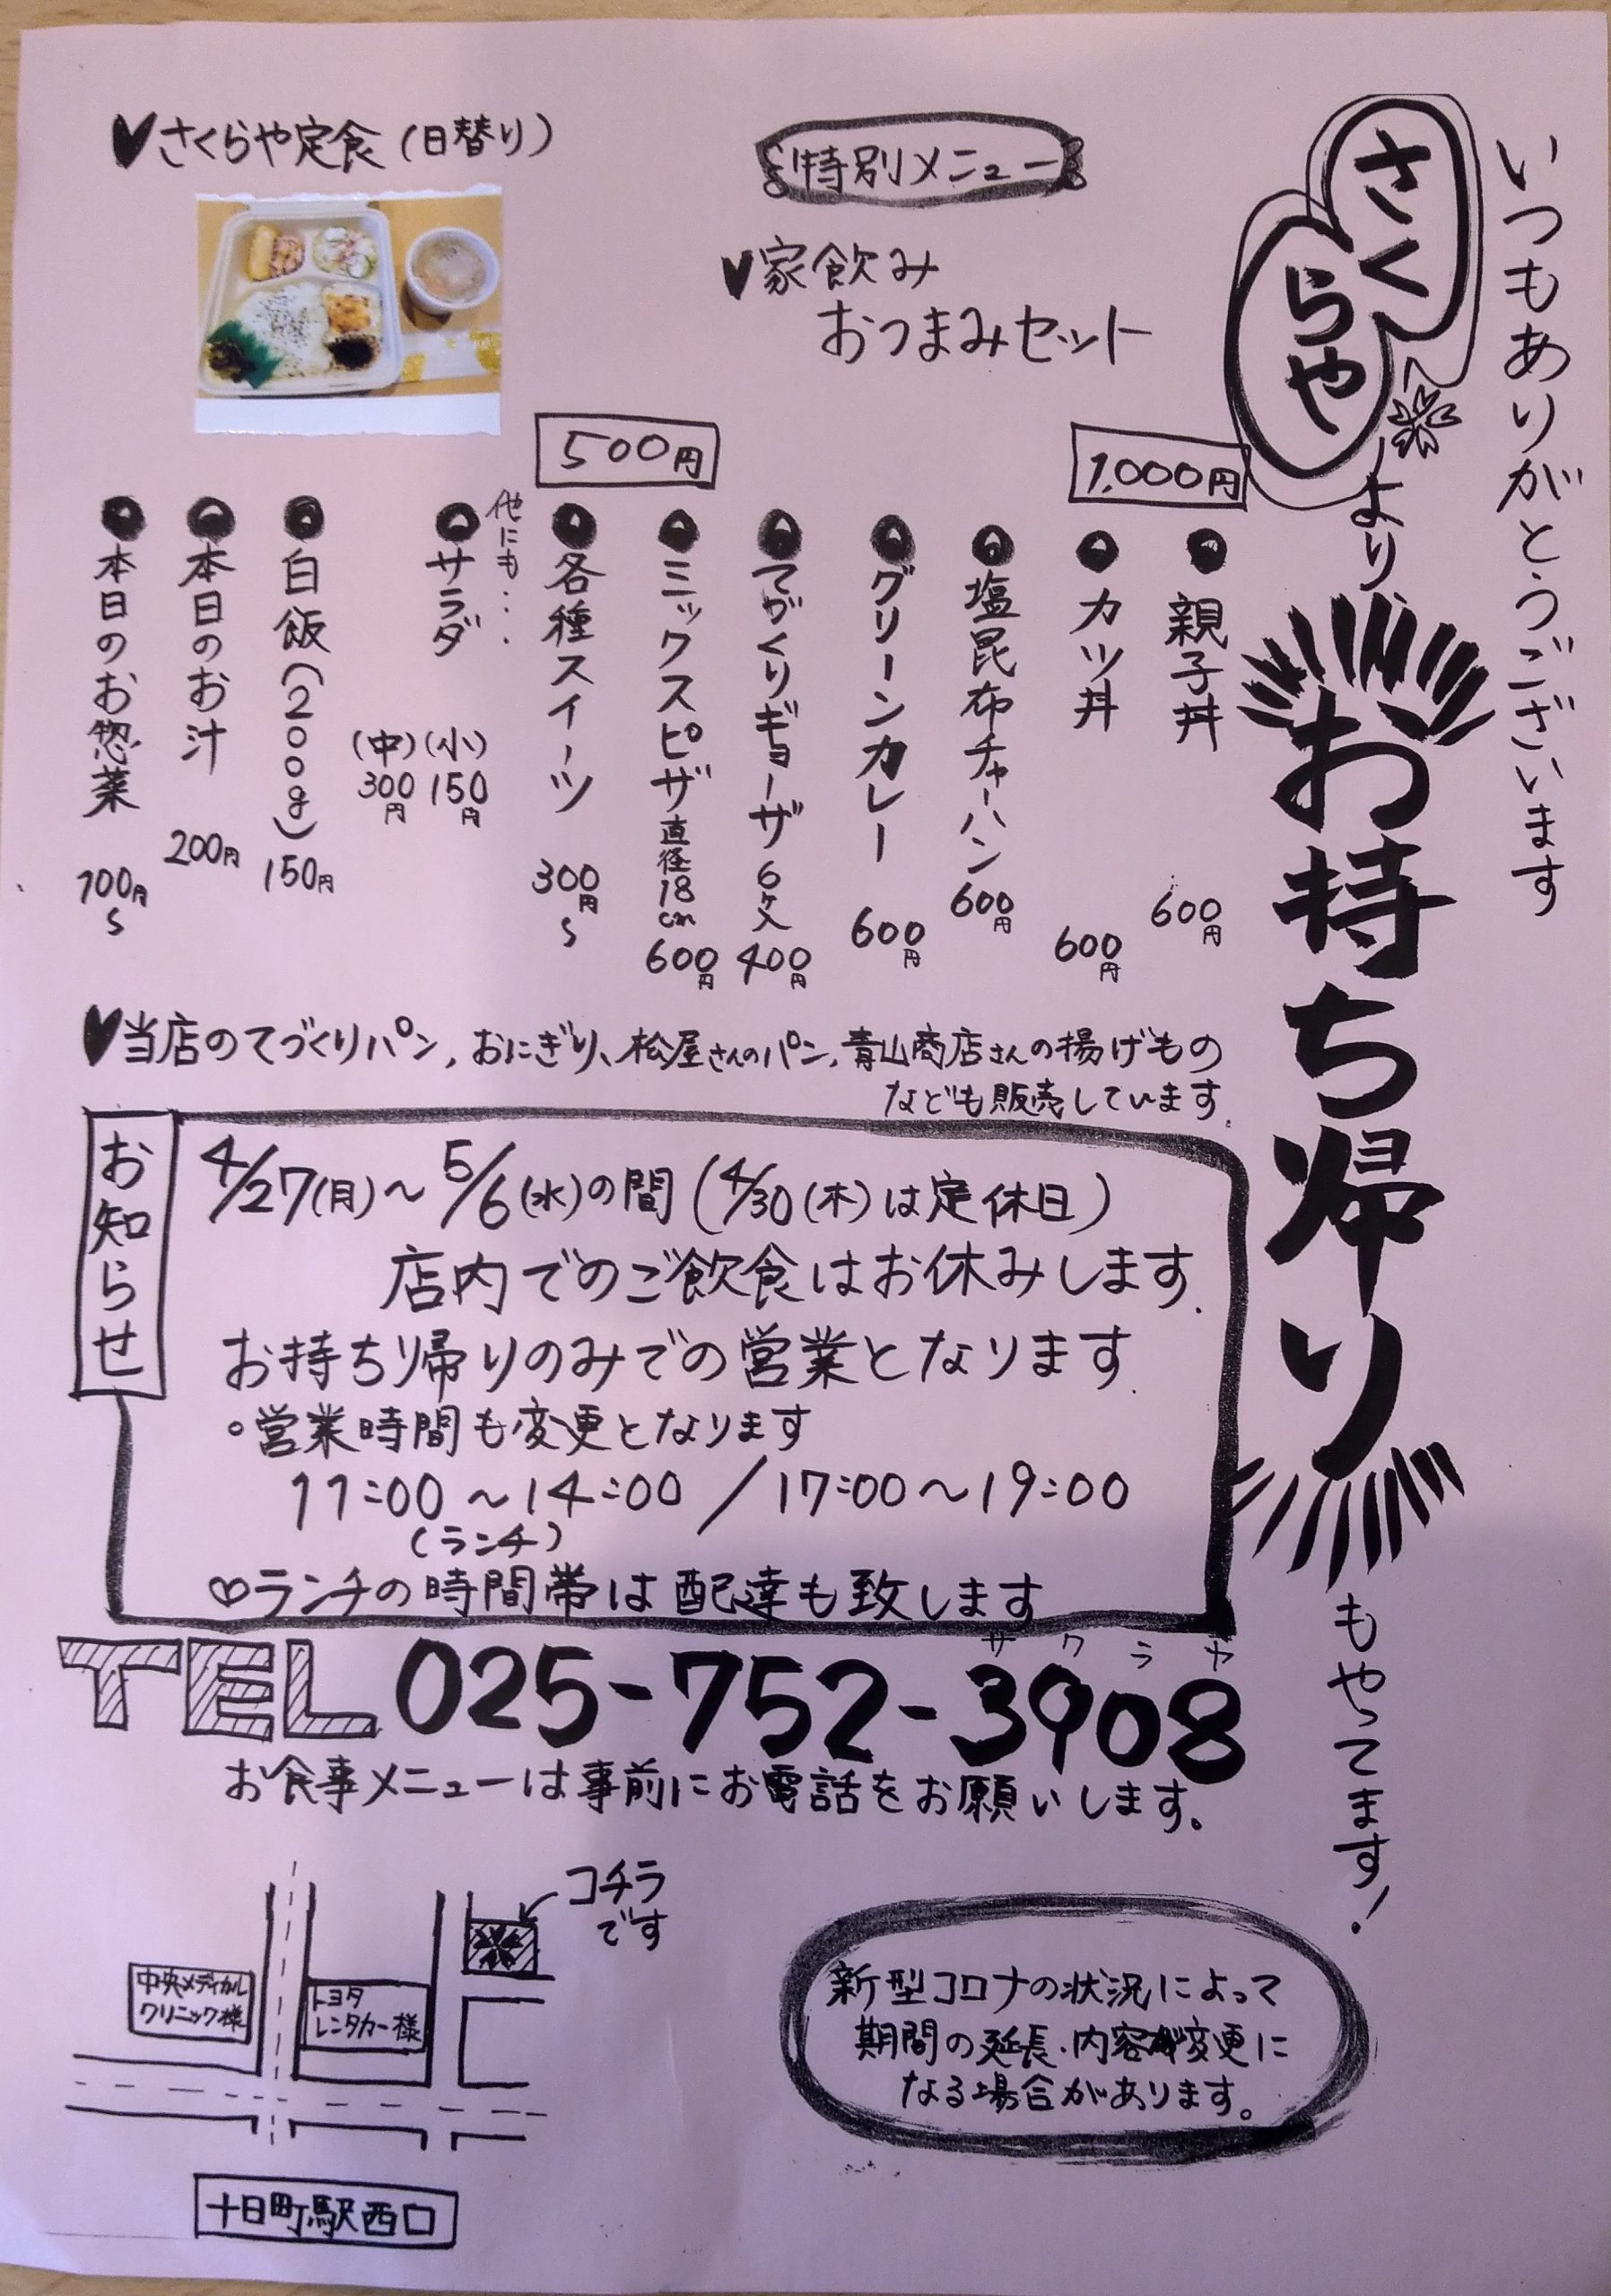 いつもありがとうございます
さくらや
より、
お持ち帰り
もやってます!
特別メニュー
♥家飲み
おつまみセット
1,000円
♥さくらや定食(日替り)
500円
●親子丼 600円
●カツ丼 600円
●塩昆布チャーハン 600円
●グリーンカレー 600円
●てづくりギョーザ 6ケ入 400円
●ミックスピザ 直径18cm 600円
●各種スイーツ 300円~
他にも...
●サラダ (小)150円 (中)300円
●白飯(200g) 150円
●本日のお汁 200円
●本日のお惣菜 100円~
♥当店のてづくりパン,おにぎり、松屋さんのパン,青山商店さんの揚げもの
なども販売しています.
お知らせ
4/27(月)~5/6(水)の間(4/30(木)は定休日)
店内でのご飲食はお休みします.
お持ち帰りのみでの営業となります.
○営業時間も変更となります
11:00~14:00/17:00~19:00
(ランチ)
♡ランチの時間帯は配達も致します
サクラヤ
TEL 025-752-3908
お食事メニューは事前にお電話をお願いします。
コチラ
です
中央メディカル
クリニック様
トヨタ
レンタカー様
十日町駅西口
新型コロナの状況によって
期間の延長.内容が変更に
なる場合があります。